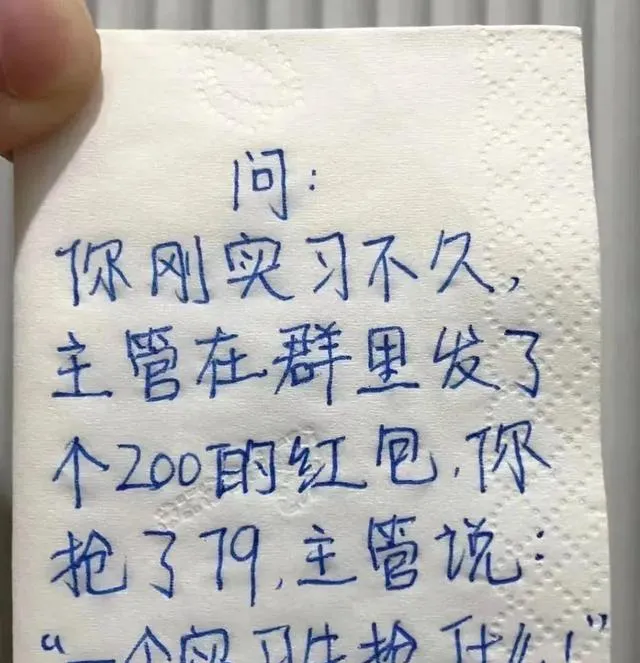 问:
你刚实习不久,
主管在群里发了
个200的红包,你
抢了79,主管说:
“一个实习生抢什么!”